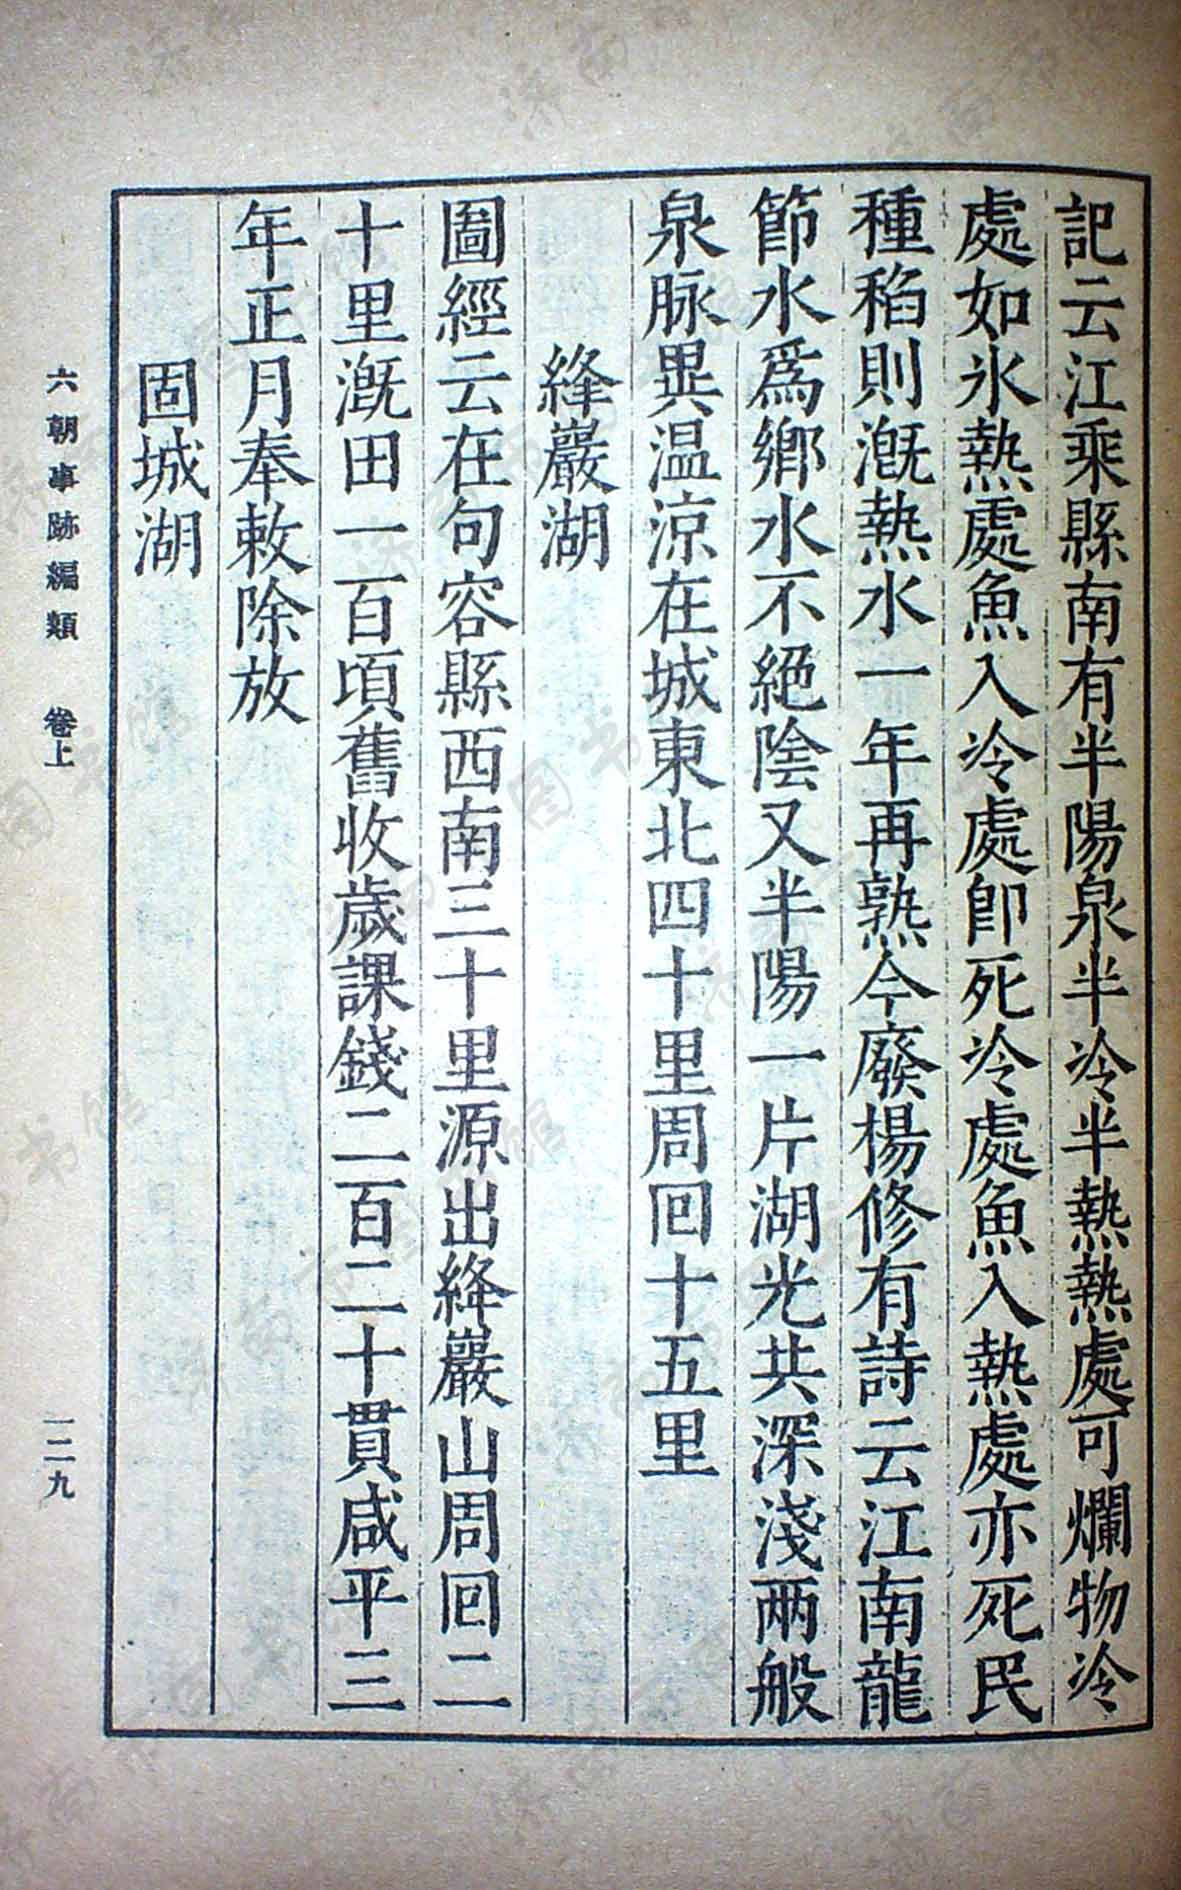 記云江乘縣南有半陽泉半冷半熱熱處可爛物冷
處如氷熱處魚入冷處卽死冷處魚入熱處亦死民
種稻則漑熱水一年再熟今廢楊修有詩云江南龍
節水爲鄉水不絕陰又半陽一片湖光共深淺兩般
泉脉異温涼在城東北四十里周回十五里
絳巖湖
圖經云在句容縣西南三十里源出絳巖山周回二
十里漑田一百頃舊收歲課錢二百二十貫咸平三
年正月奉敕除放
固城湖
六朝事跡編類 卷上
一二九